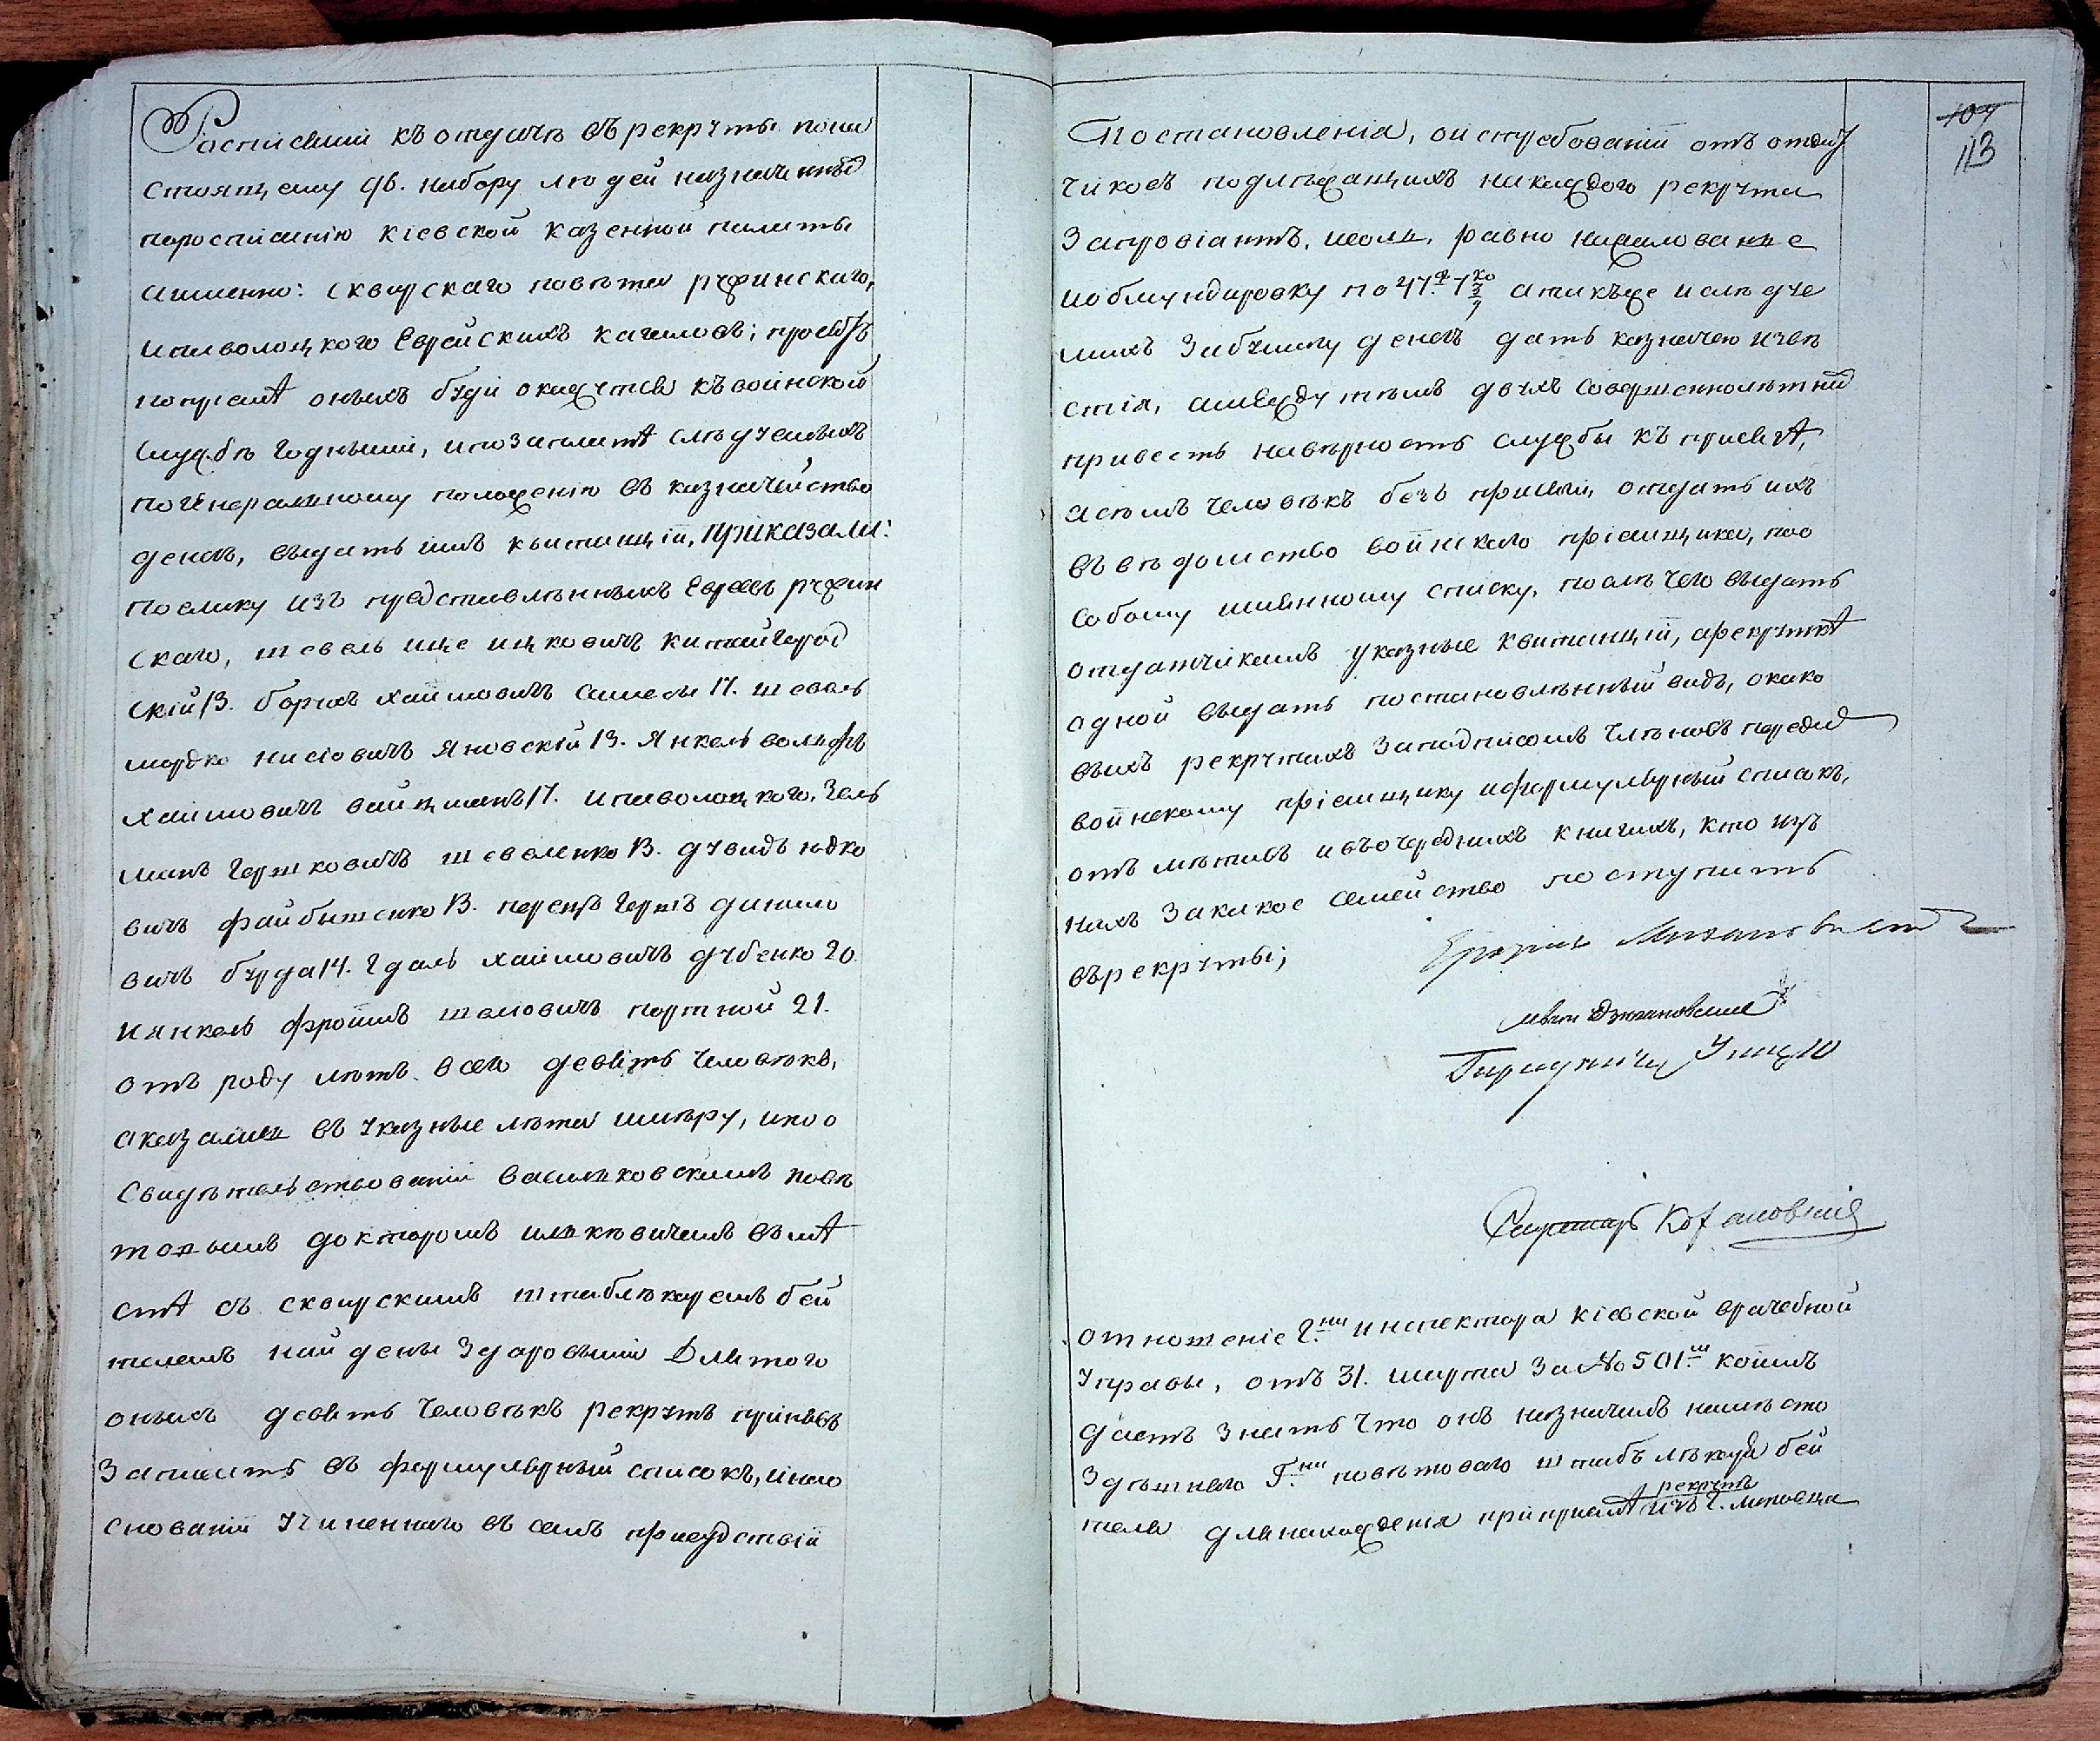 Росписании къ отдачѣ въ рекруты пона
стоящему 96. набору людей назначеныхъ
поросписанію Кіевской казенной палаты
аименно: Сквирскаго повѣта ружинскаго,
ипаволоцкого Еврейскихъ кагаловъ; просятъ
попріемѣ оныхъ буди окажутся къ воинской
службѣ годными, ипозаплатѣ слѣдуемыхъ
погенеральному положенію въ казначейство
денегъ, выдать имъ квитанціи, приказали:
поелику изъ представленныхъ Евреевъ ружин
скаго, шевель ице ицковичъ китайгород
скій 13. борухъ хаимовичъ 17. шевель
мордко нисіовичъ Яновскій 13. Янкель вольфъ
хаимовичъ вайцманъ 17. ипаволоцкого, Зель
манъ гершковичъ шевеленко 13. дувидъ юдко
вичъ файбишенко 13. перецъ гершъ данило
вичъ бурда 14. Гдаль хаимовичъ дубенко 20.
иянкель фроимъ шаповичъ портной 21.
отъ роду лѣтъ. всего девять человѣкъ,
оказались въ указные лѣта имѣру, ипоо
свидѣтельствованіи васильковскимъ повѣ
товымъ докторомъ вмѣ
стѣ съ сквирскимъ штаблѣкаремъ бей
телемъ найдены здоровыми Для того
оныхъ девять человѣкъ рекрутъ принявъ
записать въ формулярный списокъ, инао
снованіи учиненнаго въ семъ присудствіи
104
113
Постановленія, оистребованіи отъ отдат
чиковъ подлежащихъ накаждого рекрута
Запровіантъ, исоль, равно нажалованье
иобмундировку по 47 р. 7 ко атакъже ислѣдуе
мыхъ Забумагу денегъ дать казначею извѣ
стія, амежду тѣмъ двухъ совершеннолѣтныхъ
привесть навѣрность службы къ присягѣ,
асемъ человѣкъ безъ присяги, отдать ихъ
въ вѣдомство воинскаго пріемщика, поо
собому имянному списку, послѣ чего выдать
отдатчикамъ указные квитанціи, арекрутѣ
одной выдать постановленный видъ, окако
выхъ рекрутахъ Заподписомъ членовъ передать
воинскому пріемщику иформулярный списокъ,
отъ мѣтивъ ивъочередныхъ книгахъ, кто изъ
нихъ Закакое семейство поступитъ
върекруты;
Секретарь
отношеніе Г.на инспектора Кіевской врачебной
управы, отъ 31. марта За № 501.м коимъ
даетъ знать что онъ назначилъ намѣсто
здѣшнего Г.на повѣтоваго штабъ лѣкаря бей
рекрутъ
теля длянахожденія припріемѣ изъ г. липовца